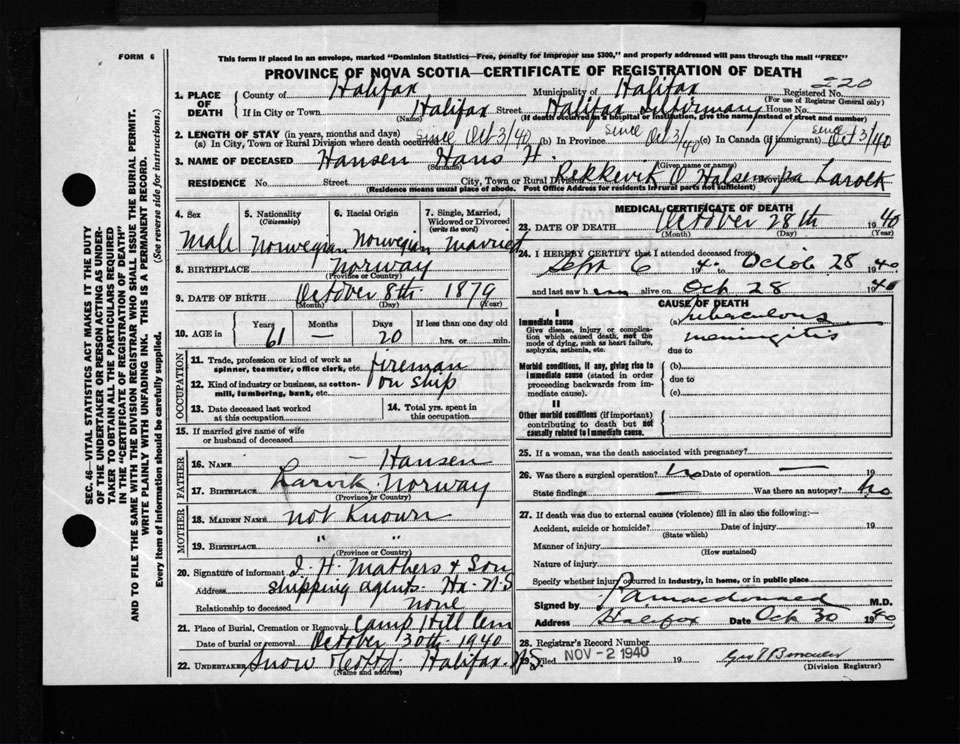 FORM 6
This form if placed in an envelope, marked "Dominion Statistics—Free, penalty for improper use $300," and properly addressed will pass through the mail "FREE"
PROVINCE OF NOVA SCOTIA—CERTIFICATE OF REGISTRATION OF DEATH
220
1. PLACE OF DEATH County of Halifax Municipality of Halifax Registered No.
(For use of Registrar General only)
If in City or Town Halifax Street Halifax Infirmary House No.
(Name) (If death occurred in a hospital or institution, give the name instead of street and number)
2. LENGTH OF STAY (in years, months and days)
(a) In City, Town or Rural Division where death occurred since Oct 3/40 (b) In Province Since Oct 3/40 (c) In Canada (if immigrant) Since Oct 3/40
3. NAME OF DECEASED Hansen Hans H.
(Surname) (Given name or names)
RESIDENCE No. Street City, Town or Rural Division Province
(Residence means usual place of abode. Post Office Address for residents in rural parts not sufficient)
4. Sex 5. Nationality (Citizenship) 6. Racial Origin 7. Single, Married, Widowed or Divorced (write the word)
Male Norwegian Norwegian married
8. BIRTHPLACE Norway
(Province or Country)
9. DATE OF BIRTH October 8th 1879
(Month) (Day) (Year)
10. AGE in Years Months Days If less than one day old
61 — 20 hrs. or min.
OCCUPATION
11. Trade, profession or kind of work as spinner, teamster, office clerk, etc. fireman
12. Kind of industry or business, as cotton-mill, lumbering, bank, etc. on ship
13. Date deceased last worked at this occupation
14. Total yrs. spent in this occupation
15. If married give name of wife or husband of deceased
FATHER
16. NAME — Hansen
17. BIRTHPLACE Larvik, Norway
(Province or Country)
MOTHER
18. MAIDEN NAME not Known
19. BIRTHPLACE " "
(Province or Country)
20. Signature of informant I. H. Mathers & Son
Address shipping agents. Hx. N.S
Relationship to deceased none
21. Place of Burial, Cremation or Removal Camp Hill Cem
Date of burial or removal October 30th 1940
22. UNDERTAKER Snow & Co Ltd. Halifax. N.S
(Name and address)
MEDICAL CERTIFICATE OF DEATH
23. DATE OF DEATH October 28th 1940
(Month) (Day) (Year)
24. I HEREBY CERTIFY that I attended deceased from
Sept 6 194. to Octob 28 1940
and last saw h im alive on Oct 28 1940
CAUSE OF DEATH
I
Immediate cause
Give disease, injury or complication which caused death, not the mode of dying, such as heart failure, asphyxia, asthenia, etc.
(a) Tuberculous
meningitis
due to
Morbid conditions, if any, giving rise to immediate cause (stated in order proceeding backwards from immediate cause).
(b)
due to
(c)
II
Other morbid conditions (if important) contributing to death but not causally related to immediate cause.
25. If a woman, was the death associated with pregnancy?
26. Was there a surgical operation? no Date of operation — 19
State findings — Was there an autopsy? no
27. If death was due to external causes (violence) fill in also the following:—
Accident, suicide or homicide? Date of injury 19
(State which)
Manner of injury
(How sustained)
Nature of injury
Specify whether injury occurred in industry, in home, or in public place
Signed by P A Macdonald M.D.
Address Halifax Date Oct 30 1940
28. Registrar's Record Number
29. Filed NOV - 2 1940 19
(Division Registrar)
SEC. 46—VITAL STATISTICS ACT MAKES IT THE DUTY
OF THE UNDERTAKER OR PERSON ACTING AS UNDER-
TAKER TO OBTAIN ALL THE PARTICULARS REQUIRED
IN THE "CERTIFICATE OF REGISTRATION OF DEATH"
AND TO FILE THE SAME WITH THE DIVISION REGISTRAR WHO SHALL ISSUE THE BURIAL PERMIT.
WRITE PLAINLY WITH UNFADING INK. THIS IS A PERMANENT RECORD.
Every item of information should be carefully supplied. (See reverse side for instructions.)